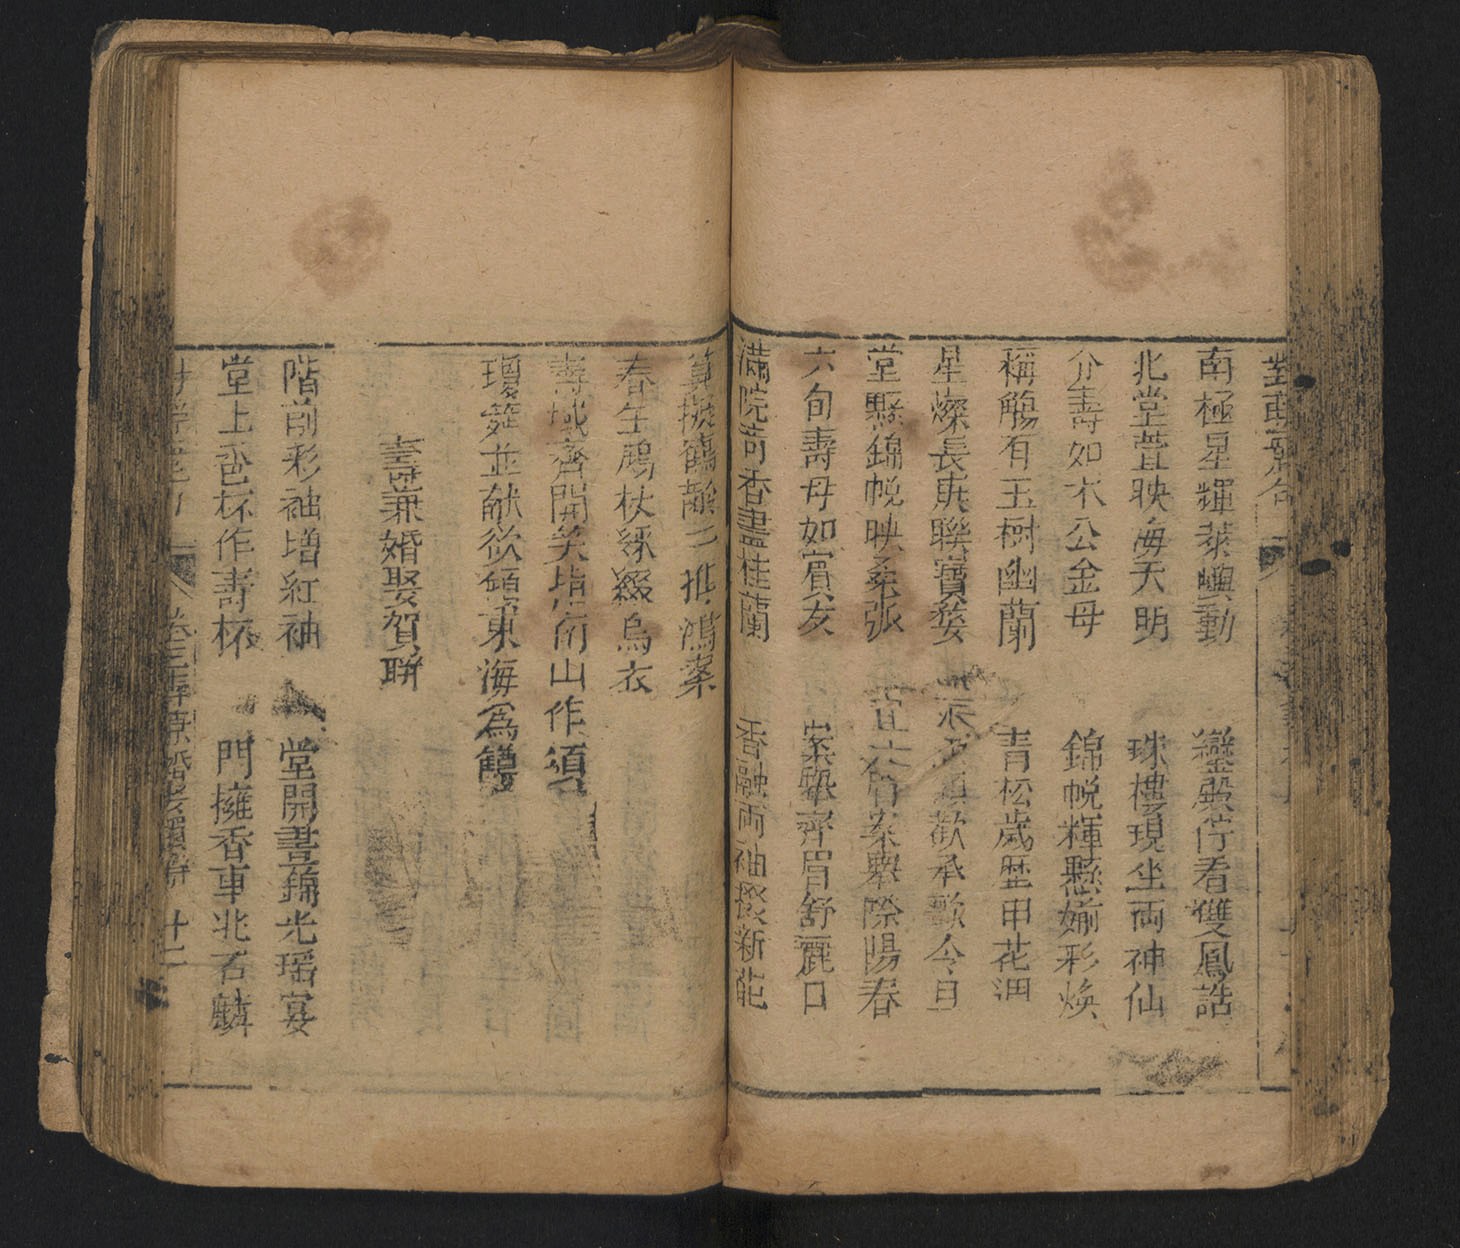 南極星輝萊嶼動　鑾殿佇看雙鳳誥
北堂萱映海天明　珠樓現坐両神仙
介壽如木公金母　錦帨輝懸婾彩煥
稱觴有玉樹幽蘭　青松歲歷甲花週
星燦長庚聯寶婺　歡承歌今日
堂懸錦帨映桑弧　案舉際陽春
六旬壽母如賓友　案舉齊眉舒麗日
滿院荷香盡桂蘭　香融両袖
算振鶴齡　推鴻案
春生鳩杖綵綴烏衣
壽域齊開笑指南山作頌
瓊筵並献欲傾東海為觴
壽誕兼婚娶賀聯
階前彩袖增紅袖　堂開晝錦光瑶宴
堂上卺杯作壽杯　門擁香車兆石麟
卷三